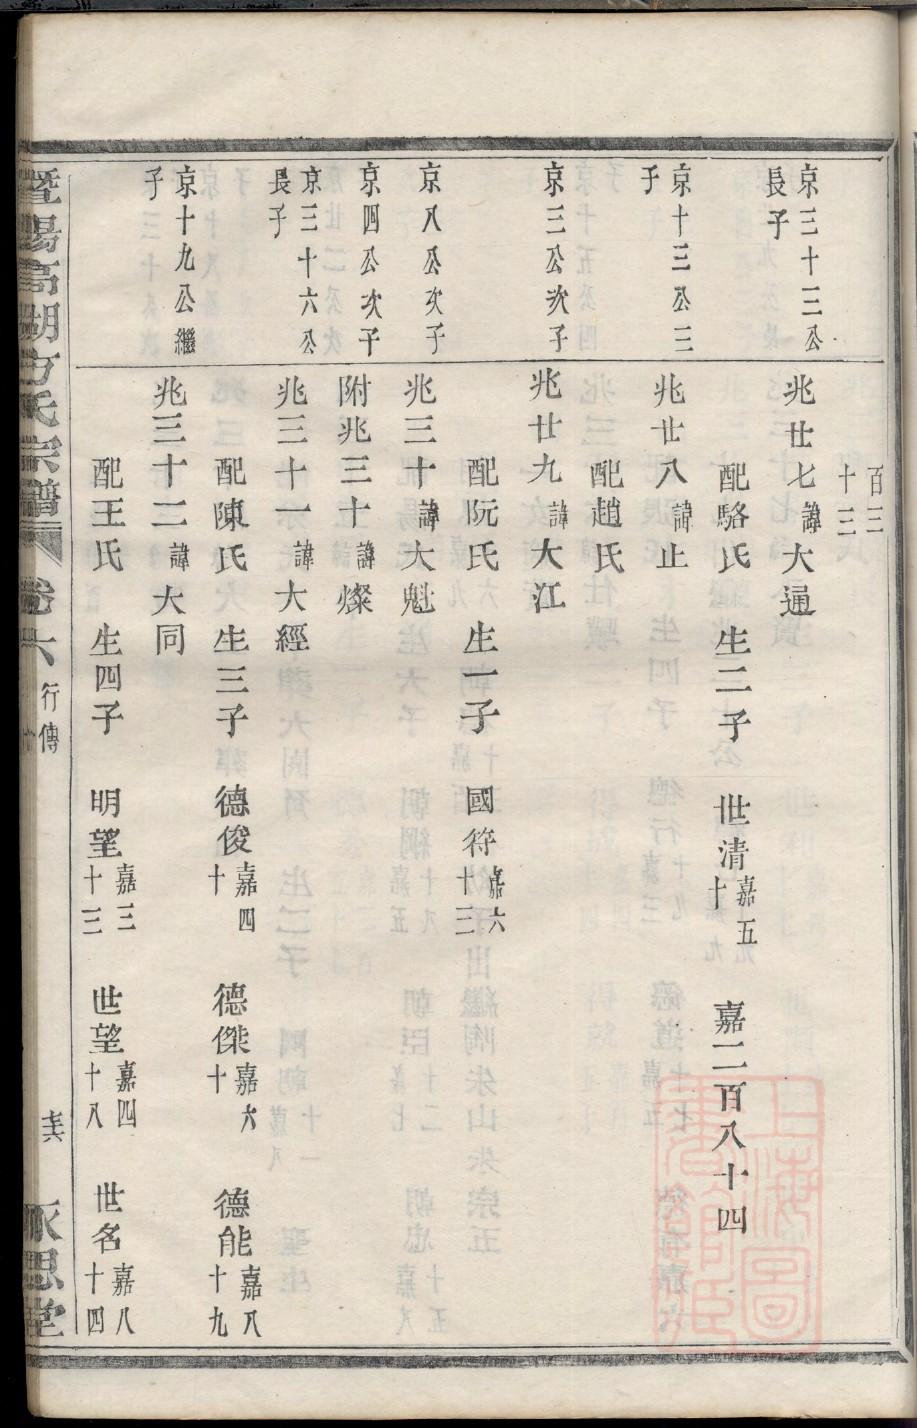 百三
十三
京三十三公
長子
兆廿七諱大通
配駱氏 生二子 世清嘉五十 嘉二百八十四
京十三公三
子
兆廿八諱止
配趙氏
京三公次子
兆廿九諱大江
配阮氏 生一子 國符嘉六十三
京八公次子
兆三十諱大魁
京四公次子
附兆三十諱燦
京三十六公
長子
兆三十一諱大經
配陳氏 生三子 德俊嘉四十 德傑嘉六十 德能嘉八十九
京十九公繼
子
兆三十二諱大同
配王氏 生四子 明望嘉三十三 世望嘉四十八 世名嘉八十四
暨陽高湖方氏宗譜 卷六 行傳 永思堂
上海圖書館藏